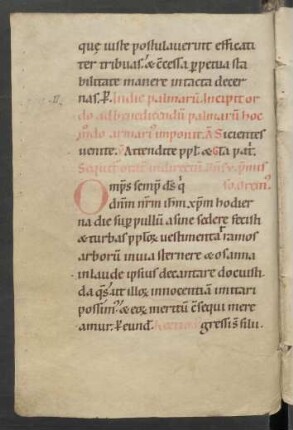 quę iuste postulaverint efficaci
ter tribuas. & c̄cessa ꝑpetua sta
bilitate manere intacta decer
nas. ꝑ. In die palmarū. Incipit or
do ad benedicendū palmarū hoc
modo armariꝰ imponit. A. Sicientes
venite. Attendite ppłe & Gła pat̄.
Omp̄s semp̄ ds̄ q̄
dn̄m nr̄m ihm̄. xp̄m hodier
na die suꝑ pullū asine sedere fecisti
& turbas ppłoꝝ vestimenta ł ramos
arborū in via sternere & osanna
in laude ipsius decantare docuisti.
da qs̄. ut illoꝝ innocentiā imitari
possimꝰ. & eoꝝ meritū c̄sequi mere
amur. ꝑ eund̄. gressi s̄ filii.